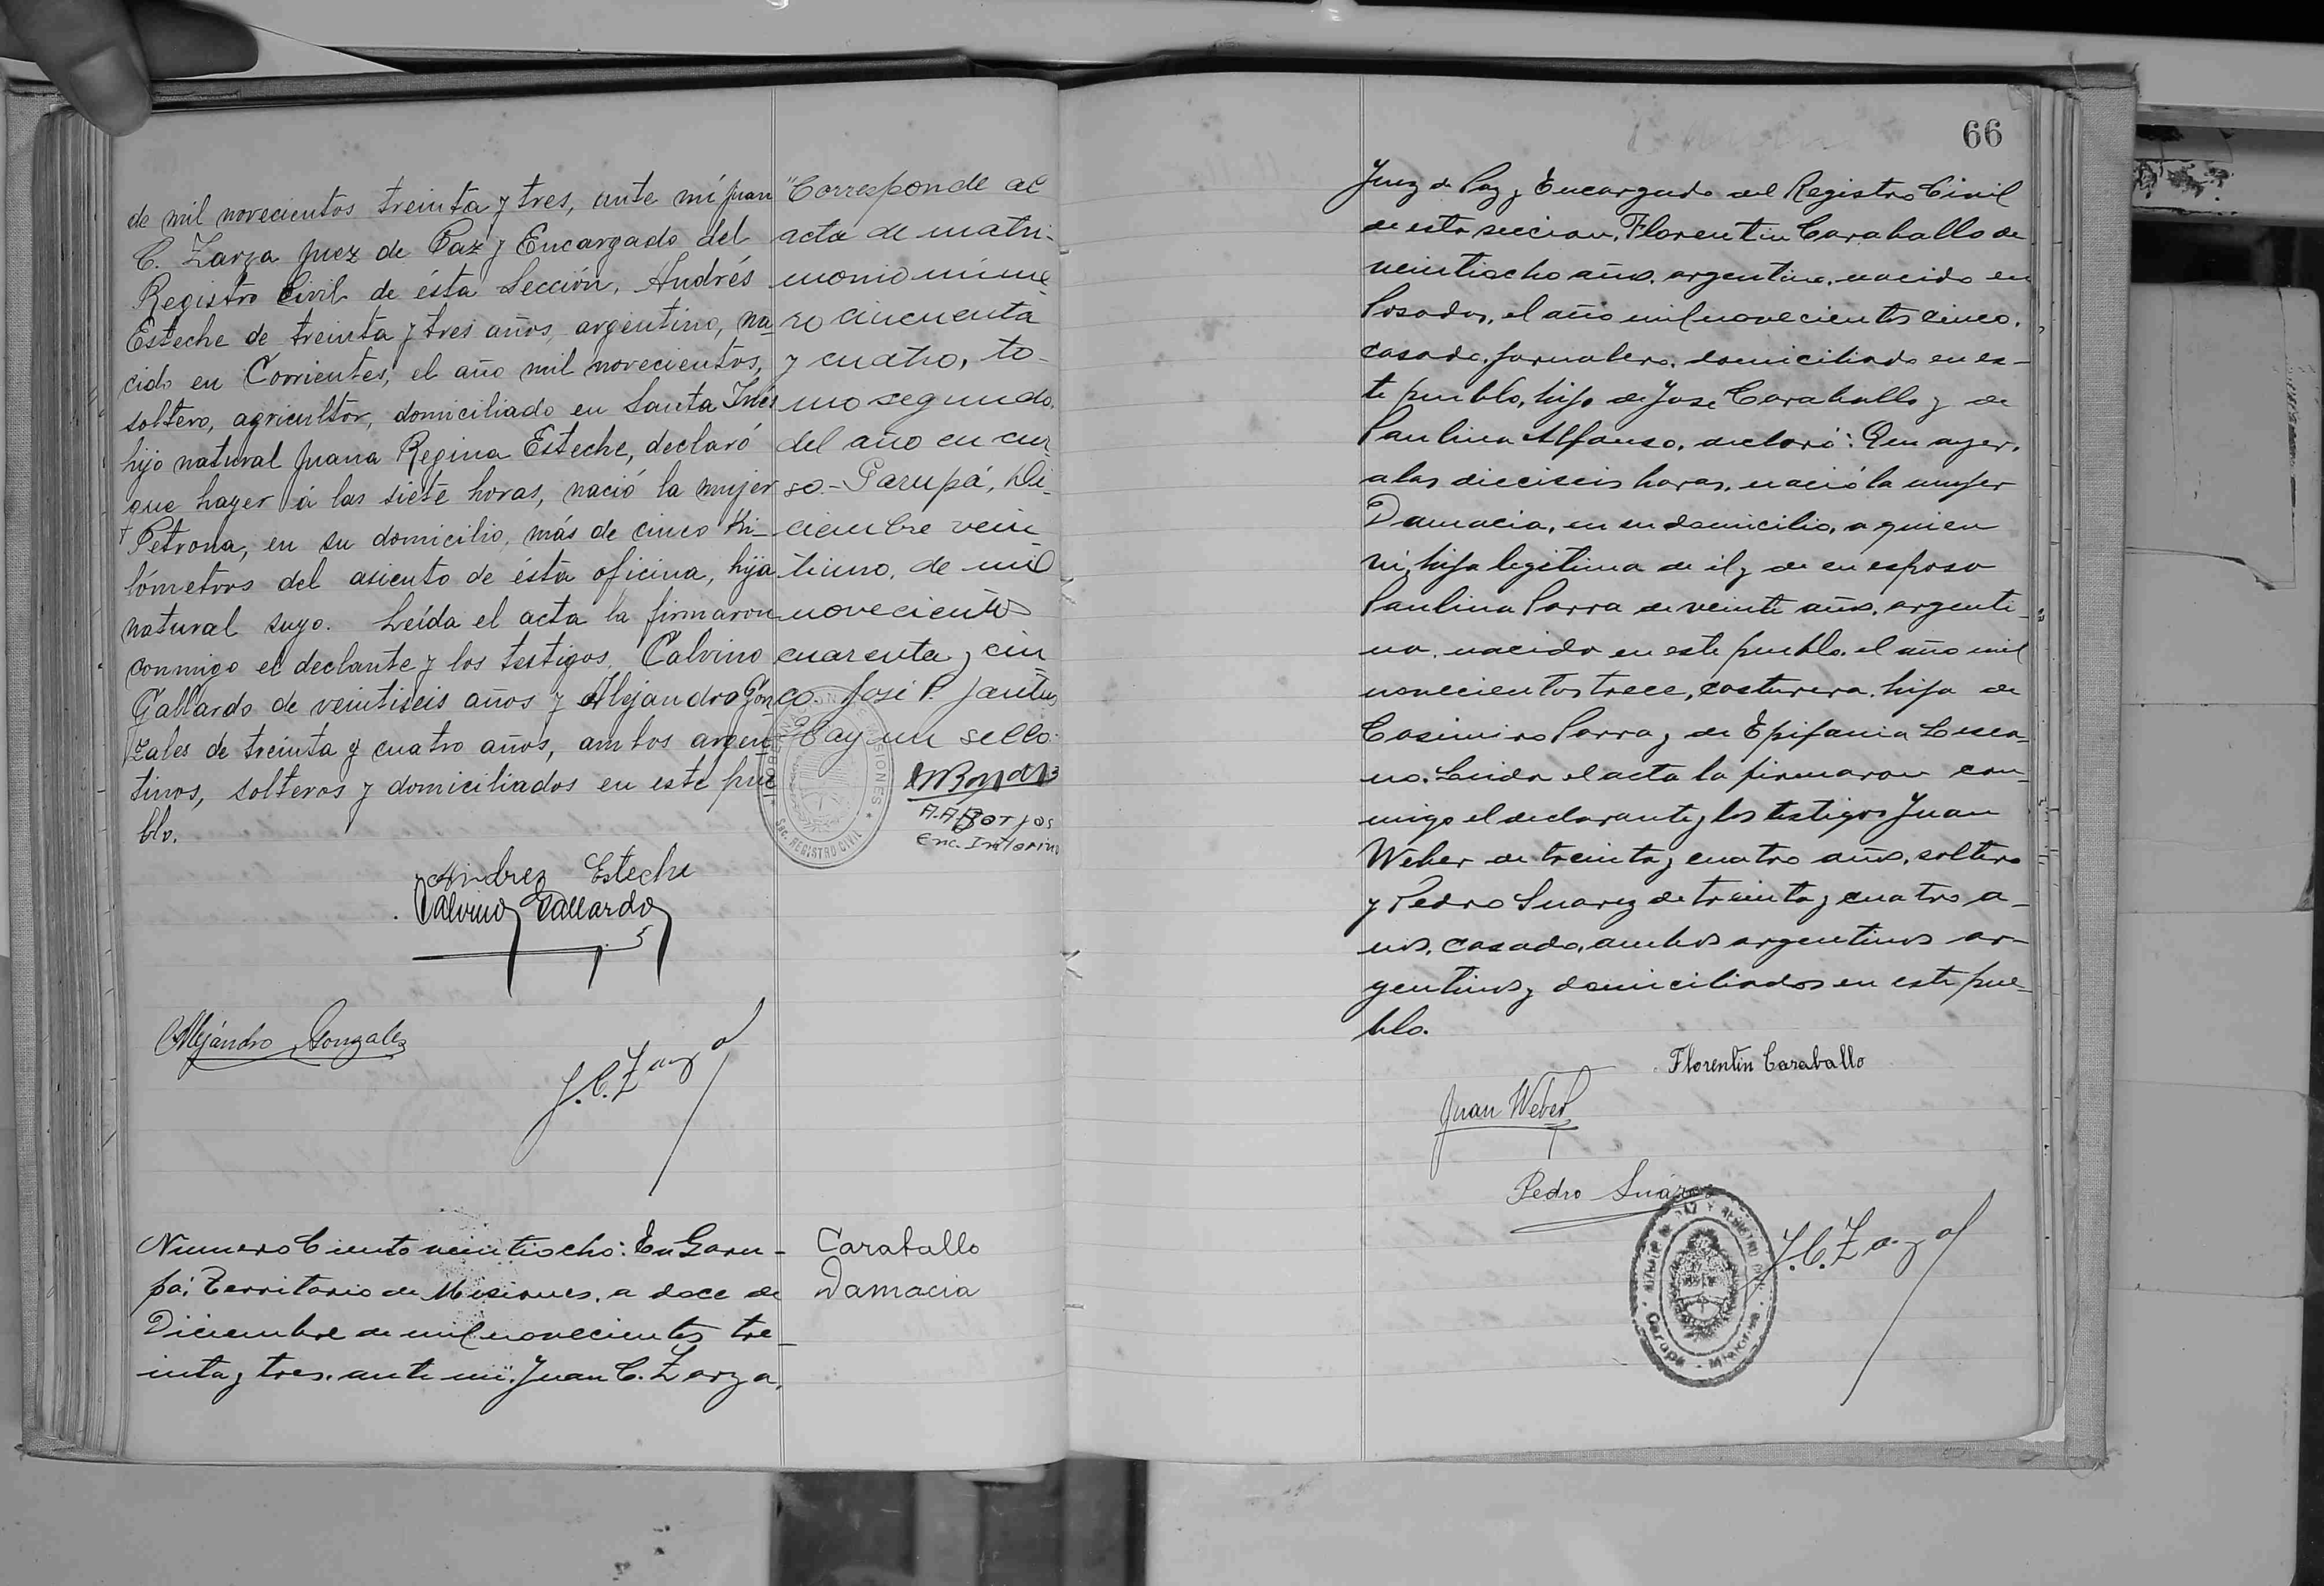 de mil novecientos treinta y tres, ante mí Juan
C. Zarza Juez de Paz y Encargado del
Registro Civil de ésta Sección, Andrés
Esteche de treinta y tres años, argentino, na
cido en Corrientes, el año mil novecientos,
soltero, agricultor, domiciliado en Santa Inés
hijo natural Juana Regina Esteche, declaró
que hayer á las siete horas, nació la mujer
Petrona, en su domicilio, más de cinco ki-
lómetros del asiento de ésta oficina, hija
natural suyo. Leída el acta la firmaron
conmigo el declante y los testigos, Calvino
Gallardo de veintiseis años y Alejandro Gon
zales de treinta y cuatro años, ambos argen
tinos, solteros y domiciliados en este pue
blo.
Andrez Esteche
Calvino Gallardo
Alejándro Gonzalez
J. C. Zarza
"Corresponde al
acta de matri-
monio núme
ro cincuenta
y cuatro, to-
mo segundo,
del año en cur
so.- Garupá, Di-
ciembre vein
tiuno, de mil
novecientos
cuarenta y cin
co. José P.
Hay un sello.
A. A. Borjas
Enc. Interino
MISIONES
Sec. REGISTRO CIVIL
Numero Ciento veintiocho: En Garu-
pá: Territorio de Misiones, a doce de
Diciembre de mil novecientos tre-
inta y tres, ante mi: Juan C. Zarza,
Caraballo
Damacia
66
Juez de Paz y Encargado del Registro Civil
de esta seccion, Florentin Caraballo de
veintiocho años, argentino, nacido en
Posadas, el año mil novecientos cinco,
casado, jornalero, domiciliado en es-
te pueblo, hijo de Jose Caraballo y de
Paulina Alfonso, declaró: Que ayer,
a las dieciseis horas, nació la mujer
Damacia, en su domicilio, a quien
vi, hija legitima de él y de su esposa
Paulina Parra de veinte años, argenti-
na, nacida en este pueblo, el año mil
novecientos trece, costurera, hija de
Casimiro Parra y de Epifania Lesca-
no. Leida el acta la firmaron con-
migo el declarante y los testigos Juan
Weber de treinta y cuatro años, soltero
y Pedro Suarez de treinta y cuatro a-
ños, casado, ambos argentinos ar-
gentinos y domiciliados en este pue-
blo.
Florentin Caraballo
Juan Weber
Pedro Suárez
JUZGADO DE PAZ Y REGISTRO CIVIL
Garupá - Misiones
J. C. Zarza